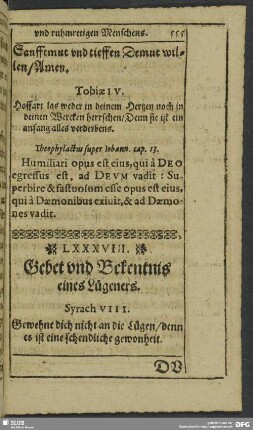 vnd ruhmretigen Menschens. 555
Sanfftmut vnd tieffen Demut wil-
len/Amen.
Tobiæ IV.
Hoffart las weder in deinem Hertzen noch in
deinen Wercken herrschen/Denn sie ist ein
anfang alles verderbens.
Theophylactus super Iohann. cap. 13.
Humiliari opus est eius, qui à DEO
egressus est, ad DEVM vadit: Su-
perbire & fastuosum esse opus est eius,
qui à Dæmonibus exiuit, & ad Dæmo-
nes vadit.
LXXXVIII.
Gebet vnd Bekentnis
eines Lügeners.
Syrach VIII.
Gewehne dich nicht an die Lügen/denn
es ist eine schendliche gewonheit.
DV
SLUB
DFG